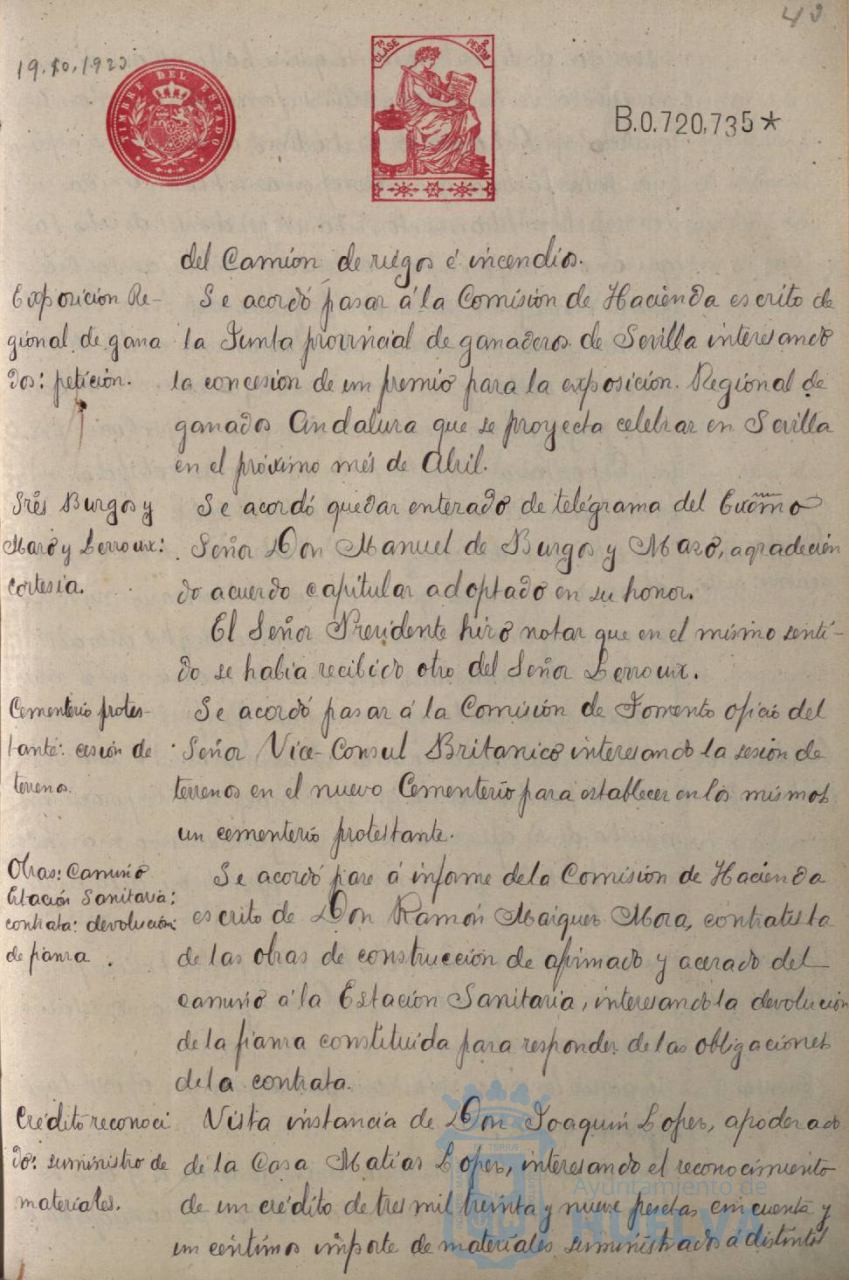 43
19.10.1923
TIMBRE DEL ESTADO
7ª CLASE
2 PESTAS
B.0.720,735*
del Camión de riégos é incendios.
Exposición Re-
gional de gana
dos: petición.
Se acordó pasar á la Comisión de Hacienda escrito de
la Junta provincial de ganaderos de Sevilla interesando
la concesion de un premio para la exposición Regional de
ganados Andaluza que se proyecta celebrar en Sevilla
en el próximo més de Abril.
Srēs Burgos y
Mazo y Lerroux:
cortesia.
Se acordó quedar enterado de telégrama del Excmo
Señor Don Manuel de Burgos y Mazo, agradecien
do acuerdo capitular adoptado en su honor.
El Señor Presidente hizo notar que en el mismo senti-
do se habia recibido otro del Señor Lerroux.
Cementerio protes-
tante: cesión de
terreno.
Se acordó pasar á la Comisión de Fomento oficio del
Señor Vice-Consul Britanico interesando la sesión de
terrenos en el nuevo Cementerio para establecer en los mismos
un cementerio protestante.
Obras: Camino
Estación Sanitaria:
contrata: devolución
de fianza.
Se acordó pase á informe de la Comisión de Hacienda
escrito de Don Ramón Maiquez Mora, contratista
de las obras de construcción de afirmado y acerado del
camino á la Estación Sanitaria, interesando la devolución
de la fianza constituida para responder de las obligaciones
de la contrata.
Crédito reconoci
do: suministro de
materiales.
Vista instancia de Don Joaquin Lopez, apoderado
de la Casa Matías Lopez, interesando el reconocimiento
de un crédito de tres mil treinta y nueve pesetas cincuenta y
un céntimos importe de materiales suministrados á distintos
Ayuntamiento de
HUELVA